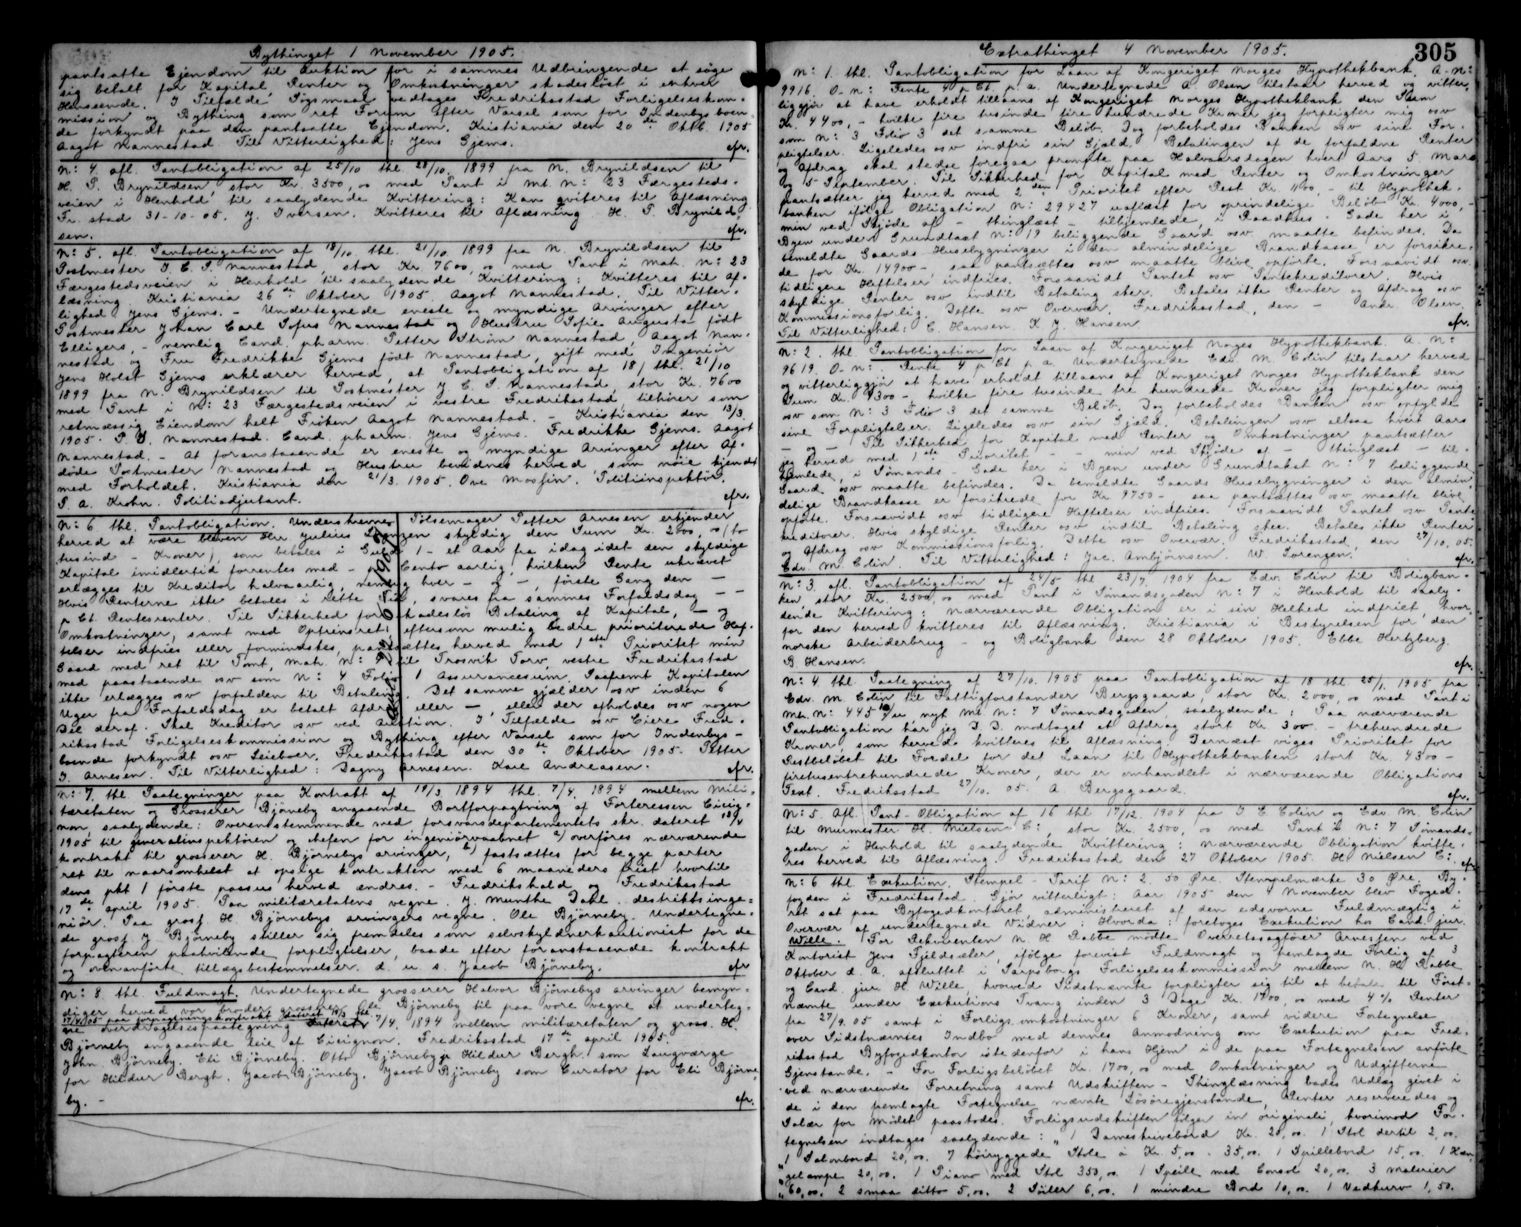 Bythinget 1 November 1905.
pantsatte Ejendom til Auktion for i sammes Udbringende at søge
sig betalt for Kapital, Renter og Omkostninger skadesløst i enhver
Henseende. I Tilfælde Søgsmaal vedtages Fredriksstad Forligelseskom-
mission og Bything som ret Forum efter Varsel som for Indenbysboen-
de forkyndt paa den pantsatte Ejendom. Kristiania den 20de Oktb. 1905
Aagot Nannestad Til Vitterlighed: Jens Gjems. efr.
N: 4. afl. Pantobligation af 25/10 thl. 28/10 1899 fra N. Brynildsen til
H. P. Brynildsen, stor Kr. 3500,00 med Pant i Mt. N: 23 Færgesteds-
veien i Henhold til saalydende Kvittering: Kan qviteres til Aflæsning
Fr.stad 31-10-05. J. Iversen. Kvitteres til Aflæsning H. P. Brynild-
sen. efr.
N: 5. afl. Pantobligation af 18/10 thl. 21/10 1899 fra N. Brynildsen til
Postmester J. C. S. Nannestad, stor Kr 7600,00 med Pant i Mat. N: 23
Færgestedsveien i Henhold til saalydende Kvittering: Kvitteres til Af-
læsning Kristiania 26de Oktober 1905 Aagot Nannestad. Til Vitter-
lighed Jens Gjems. - Undertegnede eneste og myndige Arvinger efter
Postmester Johan Carl Sofus Nannestad og Hustru Sofie Augusta født
Elligers, - nemlig Cand. pharm. Petter Strøm Nannestad, Aagot Nan-
nestad og Fru Fredrikke Gjems født Nannestad, gift med Ingeniør
Jens Holst Gjems erklærer herved, at Pantobligation af 18/ thl. 21/10
1899 fra N. Brynildsen til Postmester J. C. S. Nannestad, stor Kr. 7600
med Pant i N: 23 Færgestedsveien i vestre Fredriksstad tilhører som
retmæssig Eiendom helt Frøken Aagot Nannestad - Kristiania den 13/3
1905. P. S. Nannestad. Cand. pharm. Jens Gjems. Fredrikke Gjems. Aagot
Nannestad. - At foranstaaende er eneste og myndige Arvinger efter Af-
døde Postmester Nannestad og Hustru bevidnes herved, som nøie kjendt
med Forholdet. Kristiania den 21/3. 1905. Ove Mossin. Politiinspektør.
P. A. Krohn. Politiadjutant. efr.
N: 6 thl. Pantobligation. Underskrevne Pølsemager Petter Arnesen erkjender
herved at være bleven Hr Julius skyldig den Sum Kr. 2000,00 (to
tusind - Kroner), som betales i Guld 1 - et Aar fra idag idet den skyldige
Kapital imidlertid forrentes med - Cento aarlig, hvilken Rente ukrævet
erlægges til Kreditor halvaarlig, nemlig hver - og - første Gang den -
Hvis Renterne ikke betales i rette Tid, svares fra sammes Forfaldsdag - -
p Ct. Rentesrenter. Til Sikkerhed for skadesløs Betaling af Kapital, - og
Omkostninger, samt med Oprinsret, eftersom mulig bedre prioriterede Hef-
telser indfries eller formindskes, pantsættes herved med 1ste Prioritet min
Gaard med ret til Tomt, Mat. N: til Trosvik Torv, vestre Fredriksstad
med paastaaende osv som N: 4 Folio 1 Assurancesum. Saafremt Kapitalen
ikke erlægges osv forfalden til Betaling. Det samme gjælder osv inden 6
Uger fra Forfaldsdag er betalt Afdrag eller -, eller der afholdes osv nogen
Del deraf. Skal Kreditor osv ved Auktion. I Tilfælde osv Eiere Fred-
riksstad Forligelseskommission og Bything efter Varsel som for Indenbys-
boende forkyndt osv Leieboer. Fredriksstad den 30te Oktober 1905. Petter
J. Arnesen. Til Vitterlighed: Dagny Arnesen. Kare Andreasen. efr.
N: 7. thl. Paategninger paa Kontrakt af 19/3. 1894 thl. 7/4. 1894 mellem Mili-
tæretaten og Grosserer Bjørneby angaaende Bortforpagtning af Forteressen Cicig-
non, saalydende: Overensstemmende med forsvarsdepartementets skr. dateret 13/4
1905 til generalinspektøren og chefen for ingeniørvaabnet a) overføres nærværende
kontrakt til grosserer H. Bjørnebys arvinger, b) fastsættes for begge parter
ret til naarsomhelst at opsige kontrakten med 6 maaneders frist hvortil
dens pkt 1 første passus herved ændres. - Fredrikshald og Fredriksstad
17de april 1905. Paa militæretatens vegne. J. Munthe Dahl. distriktsinge-
niør. Paa gross. H Bjørnebys arvingers vegne. Ole Bjørneby. Undertegne-
de gross. J Bjørneby stiller sig fremdeles som selvskyldnerkautionist for de
forpagteren paahvilende forpligtelser, baade efter foranstaaende kontrakt
og ovenanførte tillægsbestemmelser. d. u. s. Jacob Bjørneby. efr
N: 8. thl. Fuldmagt. Undertegnede grosserer Halvor Bjørnebys arvinger bemyn-
diger herved vor broder Ole Bjørneby til paa vore vegne at underteg-
ne 7/4. 1894 mellem militæretaten og gross. H.
Bjørneby angaaende leie af Cicignon. Fredriksstad 17de april 1905.
John Bjørneby. Eli Bjørneby. Otto Bjørneby. Hildur Bergh. som Laugværge
for Hildur Bergh. Jacob Bjørneby. Jacob Bjørneby som Curator for Eli Bjørne-
by. - efr.
Extrathinget 4 November 1905. 305
N: 1. thl. Pantobligation for Laan af Kongeriget Norges Hypothekbank. A. N:
9916. O. N: Rente 4 p Ct. p. a. Undertegnede A Olsen tilstaar herved og vitter-
liggjør at have erholdt tillaans af Kongeriget Norges Hypothekbank den Sum
Kr. 4400,- hvilke fire tusinde fire hundrede Kroner jeg forpligter mig osv
som N: 3 Folio 3 det samme Beløb. Dog forbeholdes Banken osv sine For-
pligtelser. Ligeledes osv indfri sin Gjæld. Betalingen af de forfaldne Renter
og Afdrag skal stedse foregaa promte paa Halvaarsdagen hvert Aars 5 Mars
og 5 September. Til Sikkerhed for Kapital med Renter og Omkostninger
pantsætter jeg herved med 2den Prioritet efter Rest Kr. 1100,- til Hypothek-
banken ifølge Obligation N: 29427 uaflæst for oprindelige Beløb Kr. 4000,-
min ved Skjøde af - thinglæst - tilhjemlede, i Raadhus-Gade her i
Byen under Grundtaxt N: 19 beliggende Gaard osv maatte befindes. Da
bemeldte Gaards Husebygninger i den almindelige Brandkasse er forsikre-
de for Kr. 14900 - saa pantsættes osv maatte blive opførte. Forsaavidt osv.
tidligere Heftelser indfries. Forsaavidt Pantet osv Pantekreditorer. Hvis
skyldige Renter osv indtil Betaling sker. Betales ikke Renter og Afdrag osv
Kommissionsforlig. Dette osv Overvær. Fredriksstad, den - Andr. Olsen.
Til Vitterlighed: C. Hansen. K J. Hansen efr.
N: 2. thl. Pantobligation for Laan af Kongeriget Norges Hypothekbank. A. N:
9619. O. N: Rente 4 p Ct p. a. Undertegnede Edv. M. Colin tilstaar herved
og vitterliggjør at have erholdt tillaans af Kongeriget Norges Hypothekbank den
Sum Kr. 4300 - hvilke fire tusinde tre hundrede Kroner jeg forpligter mig
osv som N: 3 Folio 3 det samme Beløb. Dog forbeholdes Banken osv opfylde
sine Forpligtelser. Ligeledes osv sin Gjæld. Betalingen osv altsaa hvert Aars
- og - Til Sikkerhed for Kapital med Renter og Omkostninger pantsætter
jeg herved med 1ste Prioritet, - - min ved Skjøde af - thinglæst - til-
hjemlede, i Sømands-Gade her i Byen under Grundtakst N: 7 beliggende
Gaard osv maatte befindes. Da bemeldte Gaards Husebygninger i den almin-
delige Brandkasse er forsikrede for Kr 9750 - saa pantsættes osv maatte blive
opførte. Forsaavidt osv tidligere Heftelser indfries. Forsaavidt Pantet osv Pante-
kreditorer. Hvis skyldige Renter osv indtil Betaling skee. Betales ikke Renter
og Afdrag osv Kommissionsforlig. Dette osv Overvær. Fredriksstad den 27/10. 05.
Edv. M. Colin. Til Vitterlighed: Jac. Ambjørnsen. W. Sørensen. efr.
N: 3. afl. Pantobligation af 24/5 thl 23/7. 1904 fra Edv. Colin til Boligban-
ken stor Kr. 2500,00 med Pant i Sømandsgaden N: 7 i Henhold til saaly-
dende Kvittering: nærværende Obligation er i sin Helhed indfriet, hvor-
for den herved kvitteres til Aflæsning. Kristiania i Bestyrelsen for den
norske Arbeiderbrug - og Boligbank den 28 Oktober 1905. Ebbe Hertzberg.
B Hansen. efr.
N: 4 thl. Paategning af 27/10. 1905 paa Pantobligation af 18 thl. 25/1. 1905 fra
Edv. M Colin til Fattigforstander Bergsgaard, stor Kr. 2000,00 med Pant i
Mtr. N: 445, nyt Mt N: 7 Sømandsgaden, saalydende: Paa nærværende
Pantobligation har jeg D. D. modtaget et Afdrag stort Kr 300 - trehundrede
Kroner, som herved kvitteres til Aflæsning. Dernæst viges Prioritet for
Restbeløbet til Fordel for det Laan til Hypothekbanken stort Kr. 4300 -
firetusentrehundrede Kroner, der er omhandlet i nærværende Obligations
Text. Fredriksstad 27/10. 05. A. Bergsgaard. efr.
N: 5. Afl. Pant-Obligation af 16 thl 17/12. 1904 fra J. C Colin og Edv. M. Colin
til Murmester H Nielsen C:, stor Kr. 2500,00 med Pant i N: 7 Sømands-
gaden i Henhold til saalydende Kvittering: Nærværende Obligation kvitte-
res herved til Aflæsning. Fredriksstad den 27 Oktober 1905. H Nielsen C: efr
N: 6 thl Exekution. Stempel-Tarif N: 2. 50 Øre. Stempelmærke 30 Øre. By-
fogden i Fredriksstad. Gjør vitterligt: Aar 1905 den November blev Foged-
ret sat paa Byfogedkontoret administreret af den edsvorne Fuldmægtig i
Overvær af undertegnede Vidner: Hvorda: foretoges Exekution hos Cand. jur.
Wille. For Rekvirenten N H Rabbe mødte Overretssagfører Arnessen ved
Kontorist Jens Fjeldsæter, ifølge forevist Fuldmagt og fremlagde Forlig af 3
Oktober d. A. afsluttet i Sarpsborgs Forligelseskommission mellem N. H. Rabbe
og Cand. jur H Wille hvorved Sidstnævnte forpligter sig til at betale til Først-
nævnte under Exekutions Tvang inden 3 Dage Kr. 1700,00 med 4% Renter
fra 27/9. 05 samt i Forligsomkostninger 6 Kroner, samt videre Fortegnelse
over Sidstnævntes Indbo med dennes Anmodning om Exekution paa Fred-
riksstad Byfogedkontor istedenfor i hans Hjem i de paa Fortegnelsen anførte
Gjenstande. - For Forligsbeløbet Kr. 1700,00 med Omkostninger og Udgifterne
ved nærværende Forretning samt Udskriften - Thinglæsning bades Udlæg givet i
de i den fremlagte Fortegnelse nævnte Løsøregjenstande, Renter reserveredes og
Salær for Mødet paastodes. Forligsudskriften følger in originali, hvorimod For-
tegnelsen indtages saalydende: „ 1 Dameskrivebord Kr. 20,00. 1 Stol dertil 2,00.
„ 1 Salonbord 20,00. 7 høiryggede Stole a Kr. 5,00. 35,00. 1 Spillebord 15,00. 1 Hæn-
gelampe 20,00. 1 Piano med Stol 350,00. 1 Speile med Consol 20,00. 3 Malerier
„ 60,00. 2 smaa ditto 5,00. 2 Søiler 6,00. 1 mindre Bord 10,00. 1 Vedkurv 1,50.